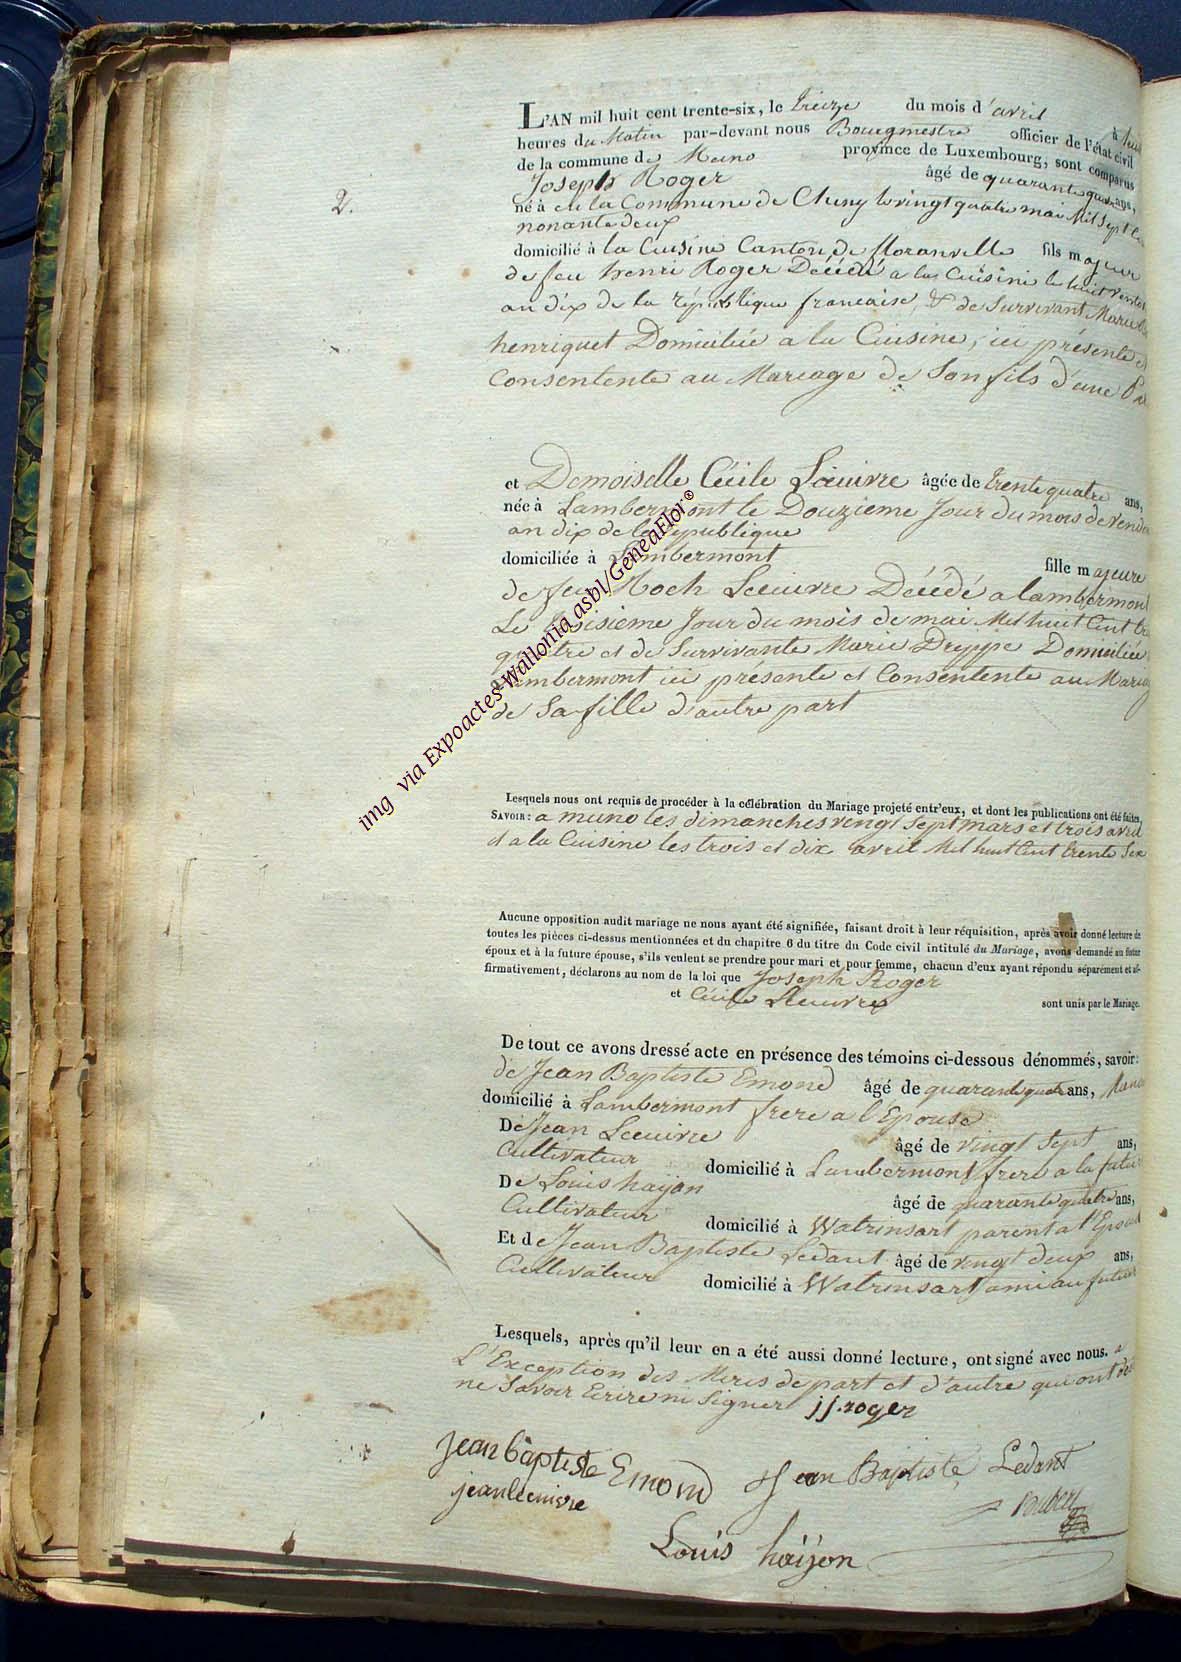 2.
L'AN mil huit cent trente-six, le treize du mois d'avril à
heures du Matin par-devant nous Bourgmestre officier de l'état civil
de la commune de Muno province de Luxembourg, sont comparus
Joseph Roger âgé de quarante quatre ans,
né à en la Commune de Chiny le vingt quatre mai Mil Sept
nonante deux
domicilié à la Cuisine Canton de floranville fils majeur
de feu henri Roger Décédé a la Cuisine le huit
an dix de la république francaise, & de Survivant Marie
henriquet Domiciliée a la Cuisine, ici présente et
Consentente au Mariage de Son fils d'une
et Demoiselle Cécile Lécuivre âgée de trente quatre ans,
née à Lambermont le Douzieme Jour du mois de
an dix de la republique
domiciliée à Lambermont fille majeure
de feu Roch Lécuivre Décédé a lambermont
Le troisieme Jour du mois de mai Mil huit Cent
quatre et de Survivante Marie Dreppe Domiciliée
a lambermont ici présente et Consentente au
de Sa fille d'autre part
Lesquels nous ont requis de procéder à la célébration du Mariage projeté entr'eux, et dont les publications ont été faites,
SAVOIR: a muno les dimanches vengt Sept mars et trois avril
et a la Cuisine les trois et dix avril Mil huit Cent trente Six
Aucune opposition audit mariage ne nous ayant été signifiée, faisant droit à leur réquisition, après avoir donné lecture de
toutes les pièces ci-dessus mentionnées et du chapitre 6 du titre du Code civil intitulé du Mariage, avons demandé au futur
époux et à la future épouse, s'ils veulent se prendre pour mari et pour femme, chacun d'eux ayant répondu séparément et af-
firmativement, déclarons au nom de la loi que Joseph Roger
et Cécile Lécuivre sont unis par le Mariage.
De tout ce avons dressé acte en présence des témoins ci-dessous dénommés, savoir:
de Jean Baptiste Emond âgé de quarante quatre ans,
domicilié à Lambermont frere a l'Epouse
De Jean Lécuivre âgé de vingt Sept ans,
Cultivateur domicilié à Lambermont frere a la
De Louis hayon âgé de quarante quatre ans,
Cultivateur domicilié à Watrinsart parent a l'Epouse
Et de Jean Baptiste Ledant âgé de vingt deux ans,
Cultivateur domicilié à Watrinsart ami au futur
Lesquels, après qu'il leur en a été aussi donné lecture, ont signé avec nous. a
L'Exception des Meres de part et d'autre qui ont
ne Savoir Ecrire ni Signer jj. roger
jean baptiste Emond Jean Baptiste Ledant
jean lecuivre
Louis haijon
img via Expoactes-Wallonia asbl/GeneaFlor®